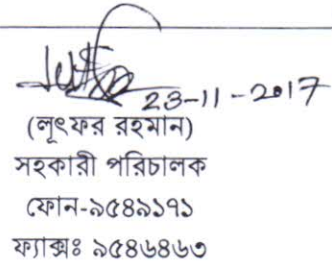 23-11-2017
(লুৎফর রহমান)
সহকারী পরিচালক
ফোন-৯৫৪৯১৭১
ফ্যাক্সঃ ৯৫৪৬৪৬৩